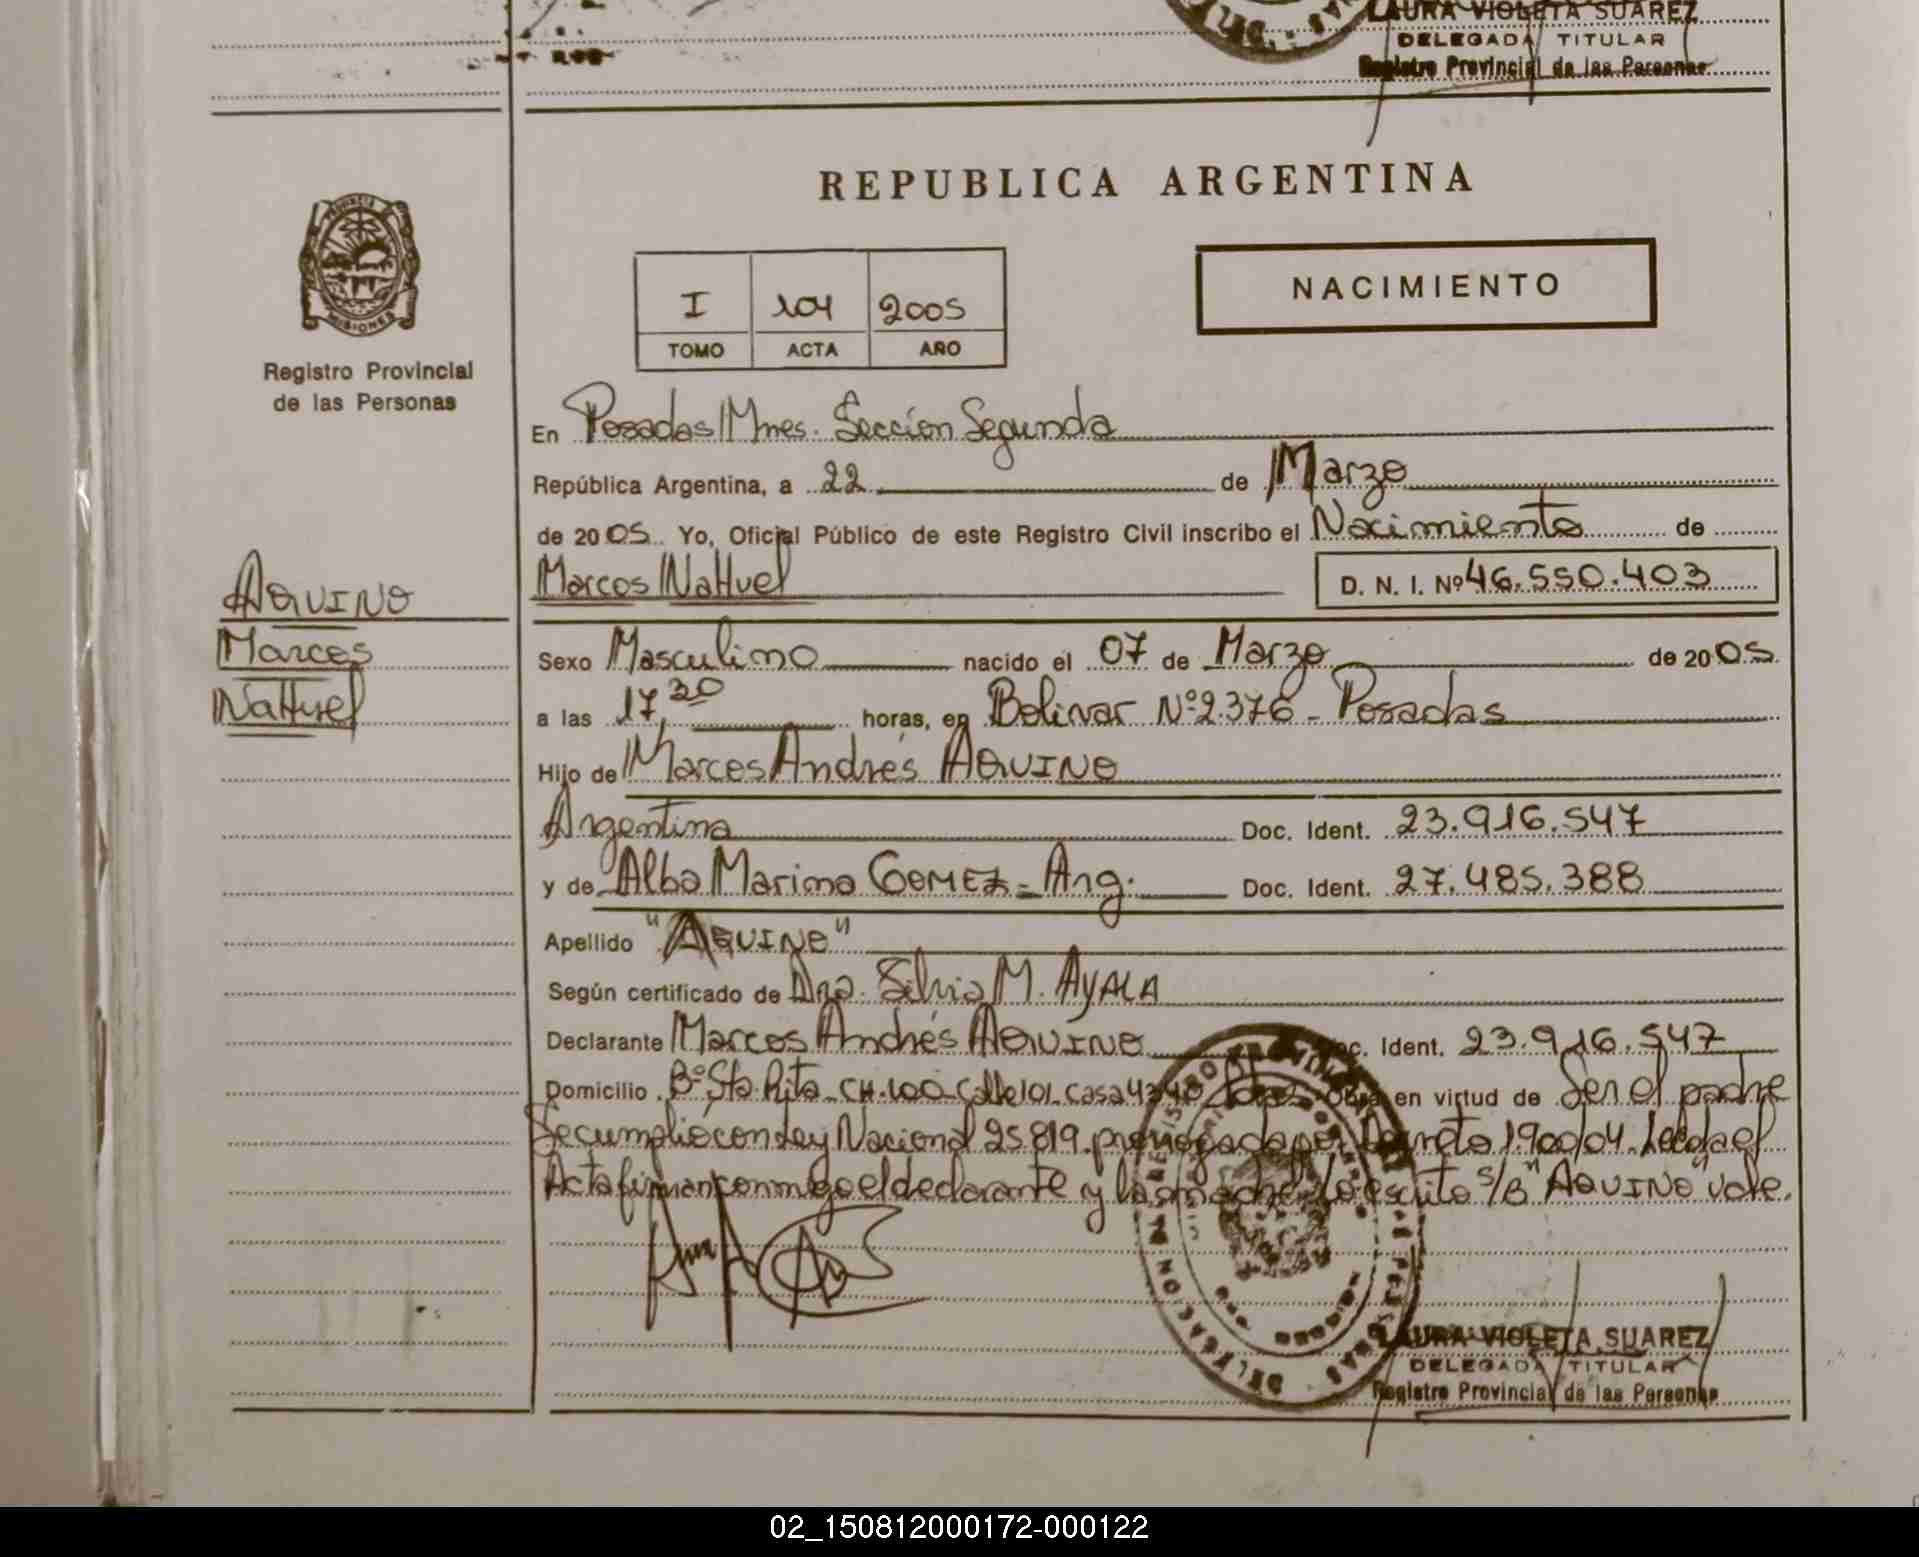 LAURA VIOLETA SUAREZ
DELEGADA TITULAR
Registro Provincial de las Personas
REPUBLICA ARGENTINA
PROVINCIA DE
MISIONES
Registro Provincial
de las Personas
I 104 2005
TOMO ACTA AÑO
NACIMIENTO
En Posadas Mnes. Sección Segunda
República Argentina, a 22 de Marzo
de 2005. Yo, Oficial Público de este Registro Civil inscribo el Nacimiento de
Marcos NaHuel D. N. I. Nº 46.550.403
AQUINO
Marcos
NaHuel
Sexo Masculino nacido el 07 de Marzo de 2005
a las 17,30 horas, en Bolivar Nº 2.376 - Posadas
Hijo de Marcos Andrés AQUINO
Argentina Doc. Ident. 23.916.547
y de Alba Marina GOMEZ - Arg. Doc. Ident. 27.485.388
Apellido "AQUINO"
Según certificado de Dra. Silvia M. AYALA
Declarante Marcos Andrés AQUINO Doc. Ident. 23.916.547
Domicilio Bº Sta Rita - CH. 100 - Calle 101 - Casa 4340 en virtud de Ser el padre
Se cumplió con Ley Nacional 25.819. prorrogada por Decreto 1.900/04. Leída el
Acta firman conmigo el declarante y la madre. Lo escrito s/B "AQUINO" vale.
LAURA VIOLETA SUAREZ
DELEGADA TITULAR
Registro Provincial de las Personas
02_150812000172-000122